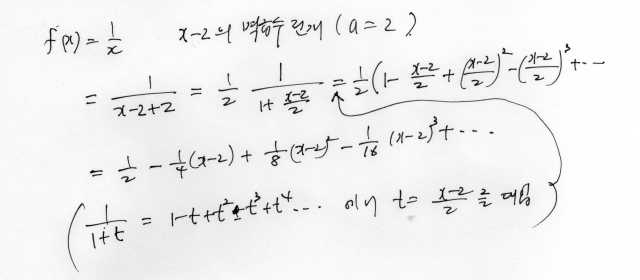 f(x) = 1/x   x-2의 멱급수 전개 (a=2)
= 1/(x-2+2) = 1/2 1/(1+(x-2)/2) = 1/2(1 - (x-2)/2 + ((x-2)/2)² - ((x-2)/2)³ + ...
= 1/2 - 1/4(x-2) + 1/8(x-2)² - 1/16(x-2)³ + ...
( 1/(1+t) = 1-t+t²-t³+t⁴... 에서 t = (x-2)/2 를 대입 )